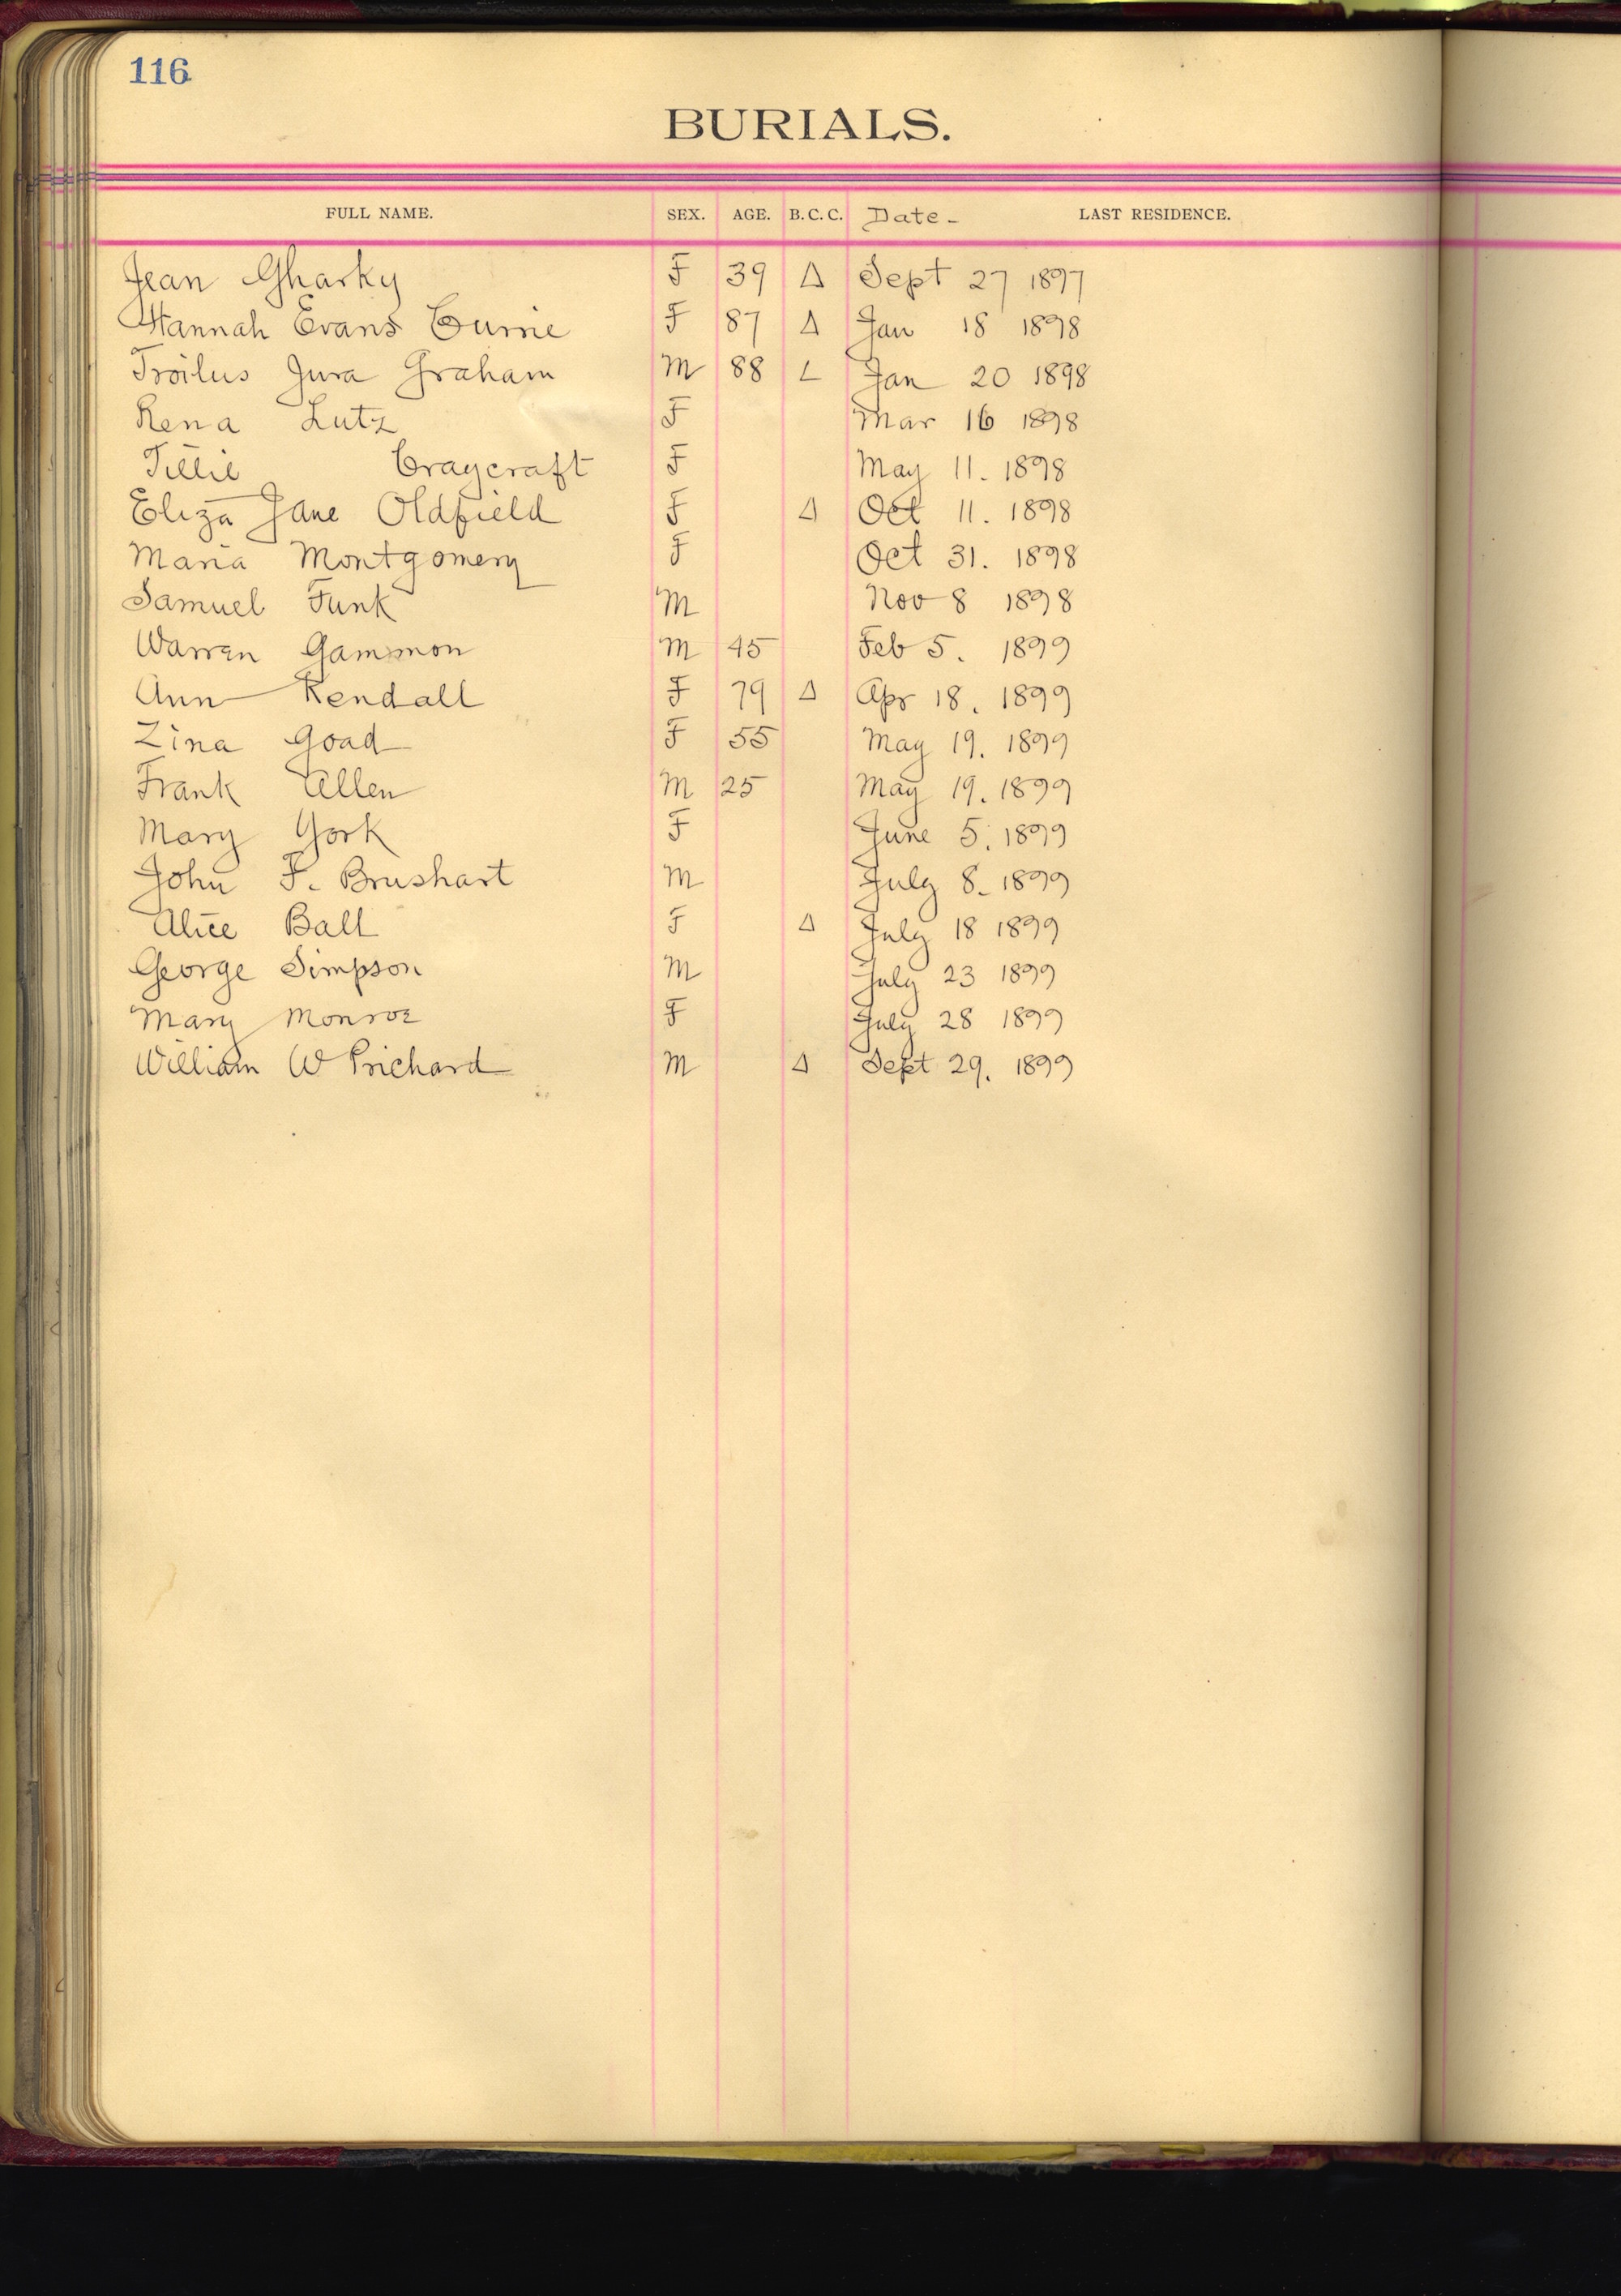 116
BURIALS.
FULL NAME. SEX. AGE. B.C.C. Date - LAST RESIDENCE.
Jean Gharky F 39 Δ Sept 27 1897
Hannah Evans Currie F 87 Δ Jan 18 1898
Troilus Jura Graham M 88 ∠ Jan 20 1898
Rena Lutz F Mar 16 1898
Tillie Craycraft F May 11. 1898
Eliza Jane Oldfield F Δ Oct 11. 1898
Maria Montgomery F Oct 31. 1898
Samuel Funk M Nov 8 1898
Warren Gammon M 45 Feb 5. 1899
Ann Kendall F 79 Δ Apr 18. 1899
Zina Goad F 55 May 19. 1899
Frank Allen M 25 May 19. 1899
Mary York F June 5. 1899
John F. Brushart M July 8. 1899
Alice Ball F Δ July 18 1899
George Simpson M July 23 1899
Mary Monroe F July 28 1899
William W Prichard M Δ Sept 29. 1899